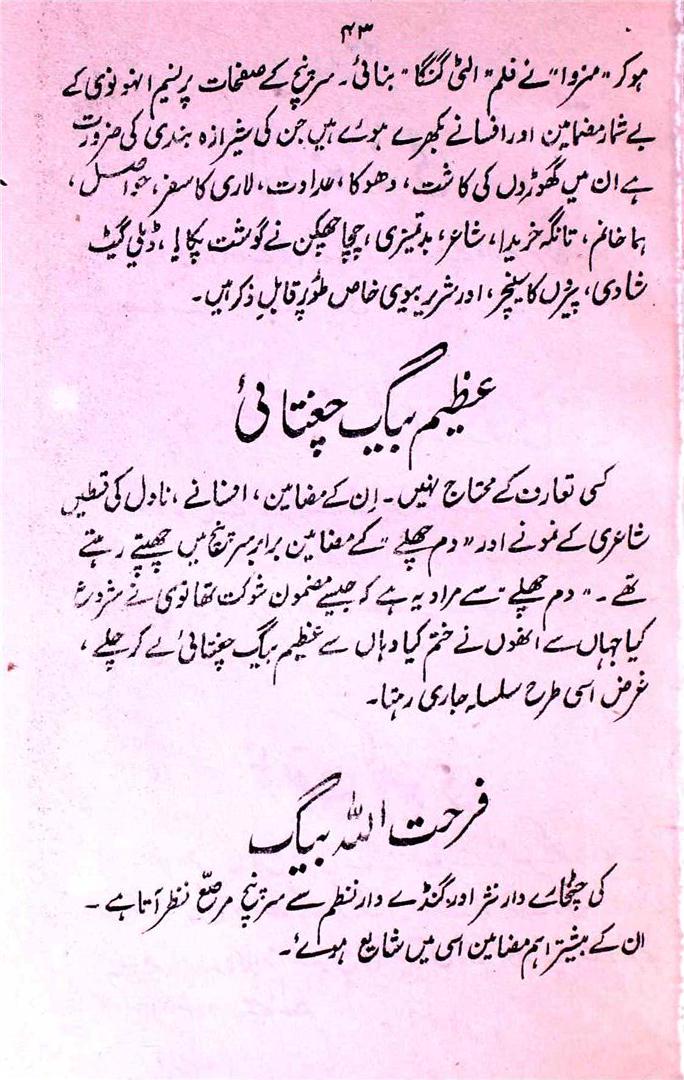 ۴۳
ہو کر "منروا" نے فلم "الٹی گنگا" بنائی۔ سرپنچ کے صفحات پر نسیم انہونوی کے
بے شمار مضامین اور افسانے بکھرے ہوئے ہیں جن کی شیرازہ بندی کی ضرورت
ہے ان میں گھوڑوں کی کاشت، دھوکا، عداوت، لاری کا سفر، حواصل،
ہما خانم، تانگہ خریدا، شاعر، بدتمیزی، چچا چھکن نے گوشت پکایا، ڈبلی گیٹ
شادی، پیروں کا سنیچر، اور شریر بیوی خاص طور پر قابلِ ذکر ہیں۔
عظیم بیگ چغتائی
کسی تعارف کے محتاج نہیں۔ اِن کے مضامین، افسانے، ناول کی قسطیں
شاعری کے نمونے اور "دم چھلے" کے مضامین برابر سرپنچ میں چھپتے رہتے
تھے۔ "دم چھلے" سے مراد یہ ہے کہ جیسے مضمون شوکت تھانوی نے شروع
کیا جہاں سے انھوں نے ختم کیا وہاں سے عظیم بیگ چغتائی لے کر چلے،
غرض اسی طرح سلسلہ جاری رہتا۔
فرحت اللہ بیگ
کی چٹخارے دار نثر اور گنڈے دار نظم سے سرپنچ مرصّع نظر آتا ہے۔
ان کے بیشتر اہم مضامین اسی میں شایع ہوئے۔